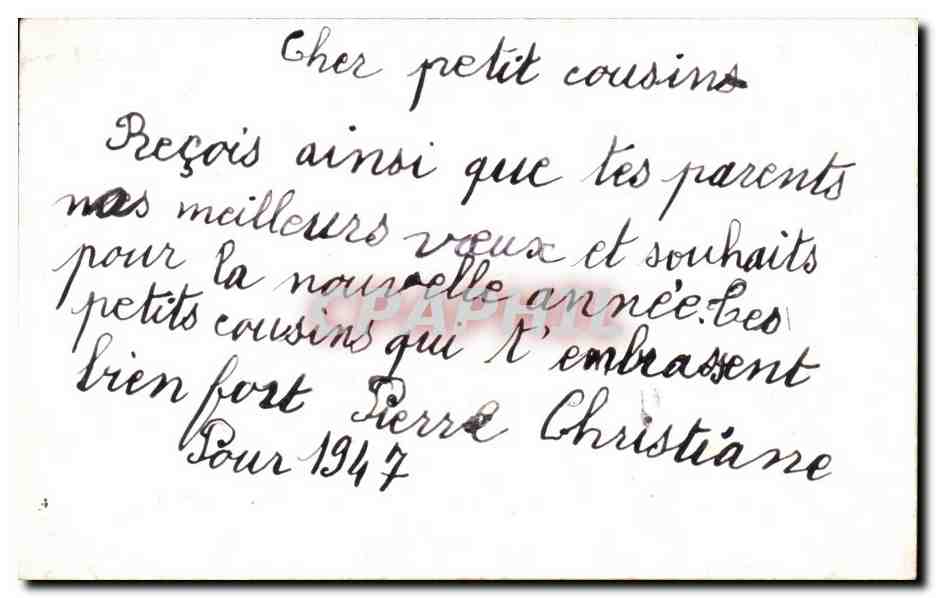 Cher petit cousins
Reçois ainsi que tes parents
nos meilleurs vœux et souhaits
pour la nouvelle année. Ces
petits cousins qui t'embrassent
bien fort Pierre Christiane
Pour 1947
CPAPHIL